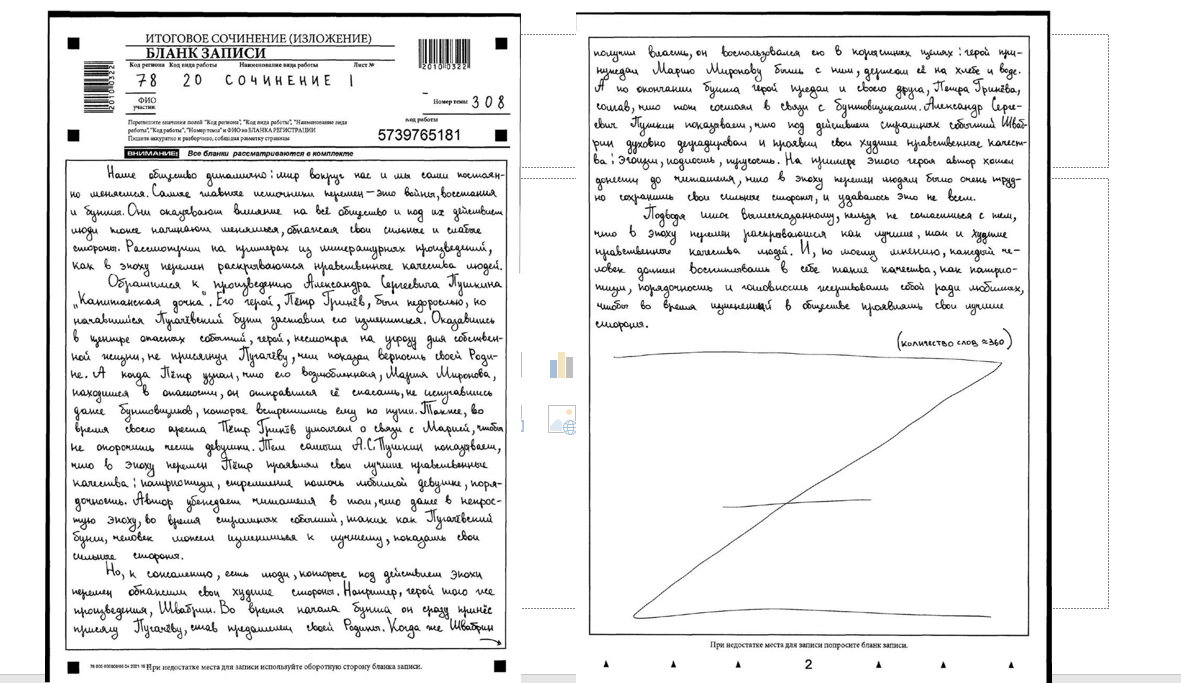 ИТОГОВОЕ СОЧИНЕНИЕ (ИЗЛОЖЕНИЕ)
БЛАНК ЗАПИСИ
Код региона Код вида работы Наименование вида работы Лист №
78 20 СОЧИНЕНИЕ 1
2010 0322
ФИО
участник
Номер темы 308
Перепишите значения полей "Код региона", "Код вида работы", "Наименование вида
работы", "Код работы", "Номер темы" и ФИО из БЛАНКА РЕГИСТРАЦИИ
Пишите аккуратно и разборчиво, соблюдая разметку страницы
код работы
5739765181
ВНИМАНИЕ! Все бланки рассматриваются в комплекте
Наше общество динамично: мир вокруг нас и мы сами постоян-
но меняемся. Самые главные источники перемен – это войны, восстания
и бунты. Они оказывают влияние на всё общество и под их действием
люди тоже начинают меняться, обнажая свои сильные и слабые
стороны. Рассмотрим на примерах из литературных произведений,
как в эпоху перемен раскрываются нравственные качества людей.
Обратимся к произведению Александра Сергеевича Пушкина
„Капитанская дочка". Его герой, Пётр Гринёв, был недорослью, но
начавшийся Пугачёвский бунт заставил его измениться. Оказавшись
в центре опасных событий, герой, несмотря на угрозу для собствен-
ной жизни, не присягнул Пугачёву, чем показал верность своей Роди-
не. А когда Пётр узнал, что его возлюбленная, Мария Миронова,
находится в опасности, он отправился её спасать, не испугавшись
даже бунтовщиков, которые встретились ему по пути. Также, во
время своего ареста Пётр Гринёв умолчал о связи с Марией, чтобы
не опорочить честь девушки. Тем самым А.С.Пушкин показывает,
что в эпоху перемен Пётр проявил свои лучшие нравственные
качества: патриотизм, стремление помочь любимой девушке, поря-
дочность. Автор убеждает читателя в том, что даже в непрос-
тую эпоху, во время страшных событий, таких как Пугачёвский
бунт, человек может измениться к лучшему, показать свои
сильные стороны.
Но, к сожалению, есть люди, которые под действием эпохи
перемен обнажили свои худшие стороны. Например, герой того же
произведения, Швабрин. Во время начала бунта он сразу принёс
присягу Пугачёву, став предателем своей Родины. Когда же Швабрин
При недостатке места для записи используйте оборотную сторону бланка записи.
получил власть, он воспользовался ею в корыстных целях: герой при-
нуждал Марию Миронову быть с ним, держал её на хлебе и воде.
А по окончании бунта герой предал и своего друга, Петра Гринёва,
солгав, что тот состоял в связи с бунтовщиками. Александр Серге-
евич Пушкин показывает, что под действием страшных событий Шваб-
рин духовно деградировал и проявил свои худшие нравственные качест-
ва: эгоизм, подлость, трусость. На примере этого героя автор хотел
донести до читателя, что в эпоху перемен людям было очень труд-
но сохранить свои сильные стороны, и удавалось это не всем.
Подводя итог вышесказанному, нельзя не согласиться с тем,
что в эпоху перемен раскрываются как лучшие, так и худшие
нравственные качества людей. И, по моему мнению, каждый че-
ловек должен воспитывать в себе такие качества, как патрио-
тизм, порядочность и готовность жертвовать собой ради любимых,
чтобы во время изменений в обществе проявлять свои лучшие
стороны.
(количество слов ≈360)
При недостатке места для записи попросите бланк записи.
2